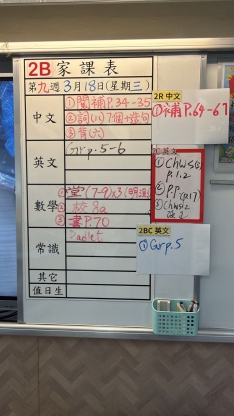 2B 家課表
第九週 3月18日(星期三)
中文
①閱補P.34-35
②詞(八)7個+造句
③背(六)
英文
Grp.5-6
數學
①堂(7-9)x3(明測)
②校8a
③書P.70
常識
Padlet
其它
值日生
2R 中文
①補P.64-67
2C 英文
①Chws(5)
p.1.2
②P.P.(p.17)
③Chws2
2BC 英文
①Grp.5